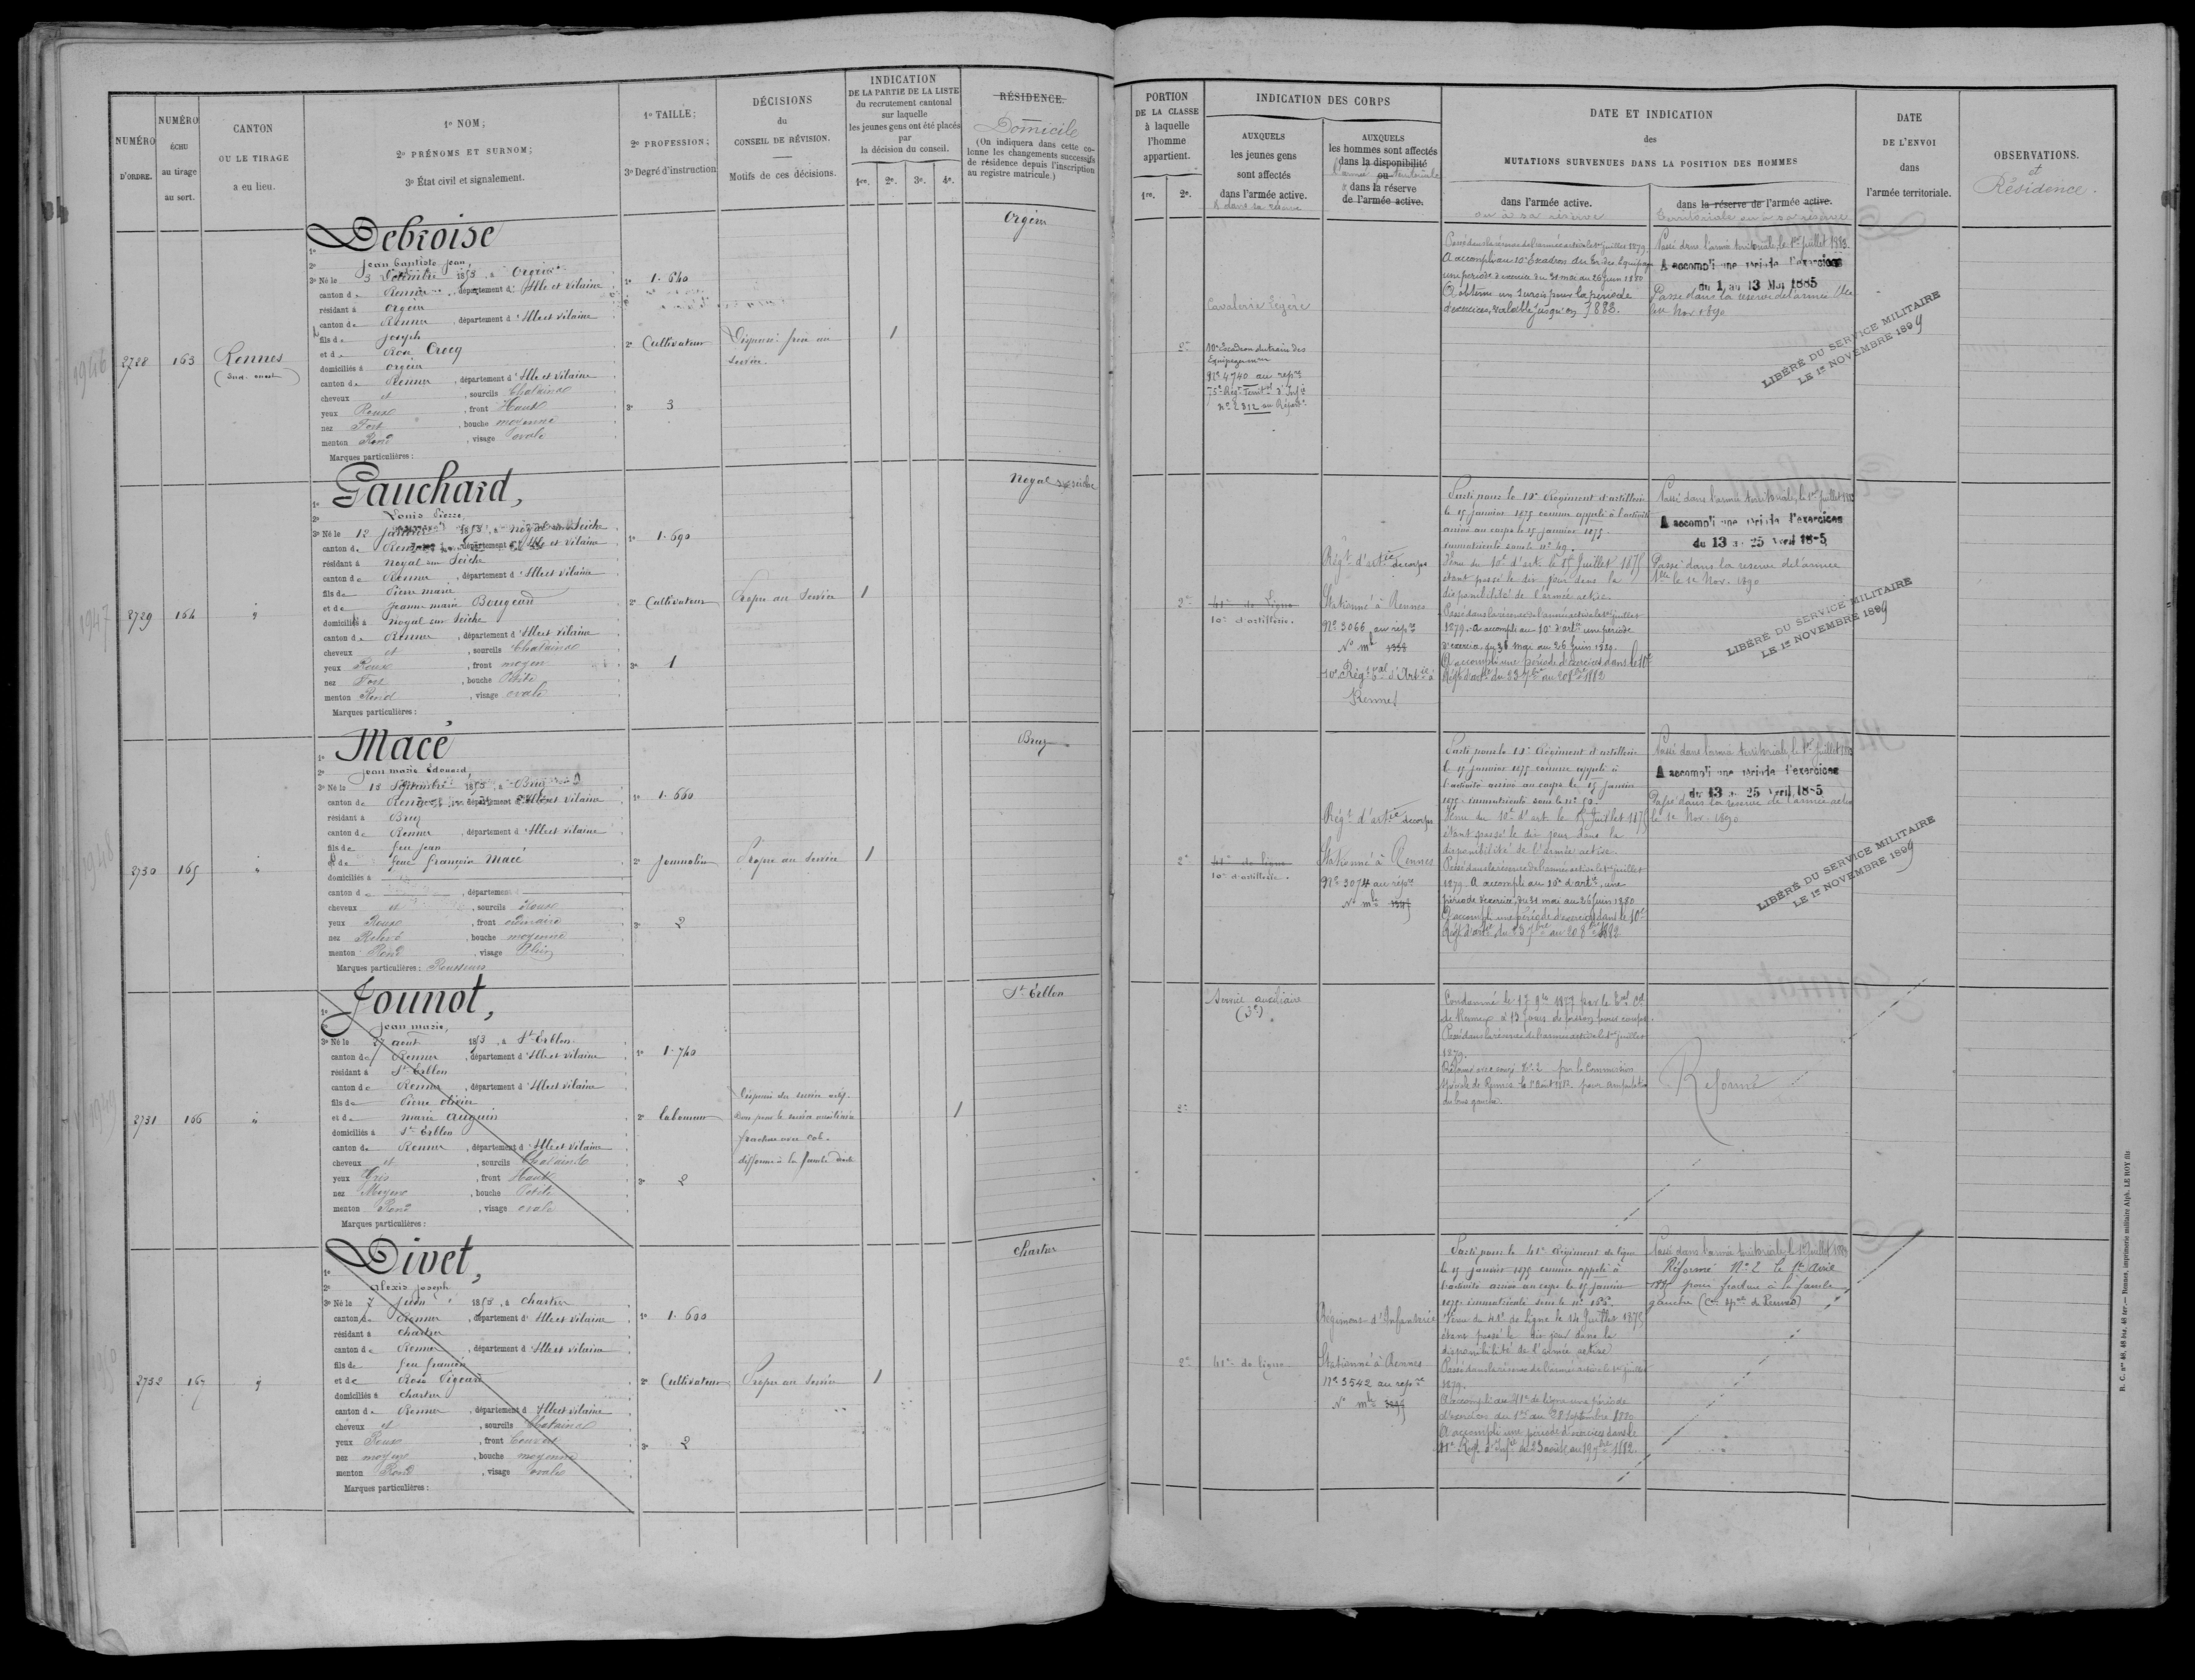 NUMÉRO D'ORDRE.
NUMÉRO ÉCHU au tirage au sort.
CANTON OU LE TIRAGE a eu lieu.
1º NOM;
2º PRÉNOMS ET SURNOM;
3º État civil et signalement.
1º TAILLE;
2º PROFESSION;
3º Degré d'instruction
DÉCISIONS du CONSEIL DE RÉVISION.
Motifs de ces décisions.
INDICATION DE LA PARTIE DE LA LISTE du recrutement cantonal sur laquelle les jeunes gens ont été placés par la décision du conseil.
1re. 2e. 3e. 4e.
RÉSIDENCE.
Domicile
(On indiquera dans cette colonne les changements successifs de résidence depuis l'inscription au registre matricule.)
PORTION DE LA CLASSE à laquelle l'homme appartient.
1re. 2e.
INDICATION DES CORPS
AUXQUELS les jeunes gens sont affectés dans l'armée active.
AUXQUELS les hommes sont affectés dans la disponibilité ou dans la réserve de l'armée active.
DATE ET INDICATION des MUTATIONS SURVENUES DANS LA POSITION DES HOMMES
dans l'armée active.
ou à sa réserve
dans la réserve de l'armée active.
Territoriale ou à sa réserve
DATE DE L'ENVOI dans l'armée territoriale.
OBSERVATIONS.
et Résidence.
1946
2728
163
Rennes
Debroise
1º
2º Jean Baptiste Jean,
3º Né le 3 Septembre 1853, à Orgères
canton de Rennes, département d'Ille et Vilaine
résidant à Orgères
canton de Rennes, département d'Ille et Vilaine
fils de Joseph
et de Rose Crocq
domiciliés à Orgères
canton de Rennes, département d'Ille et Vilaine
cheveux et, sourcils Chatains
yeux Roux, front Haut
nez Fort, bouche moyenne
menton Rond, visage ovale
Marques particulières :
1º 1.640
2º Cultivateur
3º 3
1
Orgères
2e
Cavalerie légère
10e Escadron du train des Equipages
Nº 4740 au rep
75e Régt Territ d'Infie
Nº 2812 au Répert
Passé dans la réserve de l'armée active le 1er juillet 1879.
A accompli au 10e Escadron du Train des Equipages
une période d'exercice du 31 mai au 26 Juin 1880
A obtenu un sursis pour la période
d'exercices, valable jusqu'en 1883.
Passé dans l'armée territoriale, le 1er juillet 1883.
A accompli une période d'exercices
du 1 au 13 Mai 1885
Passé dans la réserve de l'armée Tle
le 1er Nov. 1890
LIBÉRÉ DU SERVICE MILITAIRE
LE 1er NOVEMBRE 1899
1947
2729
164
Gauchard,
1º
2º Louis Pierre,
3º Né le 12 janvier 1853, à Noyal sur Seiche
canton de Rennes, département d'Ille et Vilaine
résidant à Noyal sur Seiche
canton de Rennes, département d'Ille et Vilaine
fils de Pierre marie
et de Jeanne marie Bougeard
domiciliés à Noyal sur Seiche
canton de Rennes, département d'Ille et Vilaine
cheveux et, sourcils Chatains
yeux Roux, front moyen
nez Fort, bouche Petite
menton Rond, visage ovale
Marques particulières :
1º 1.690
2º Cultivateur
3º 1
Propre au Service
1
Noyal sur seiche
2e
41e de Ligne
10e d'artillerie.
Régt d'artie de corps
Stationné à Rennes
Nº 3066 au rep
10e Régt d'Artie à
Rennes
Parti pour le 10e Régiment d'artillerie
le 15 janvier 1875 comme appelé à l'activité
arrivé au corps le 15 janvier 1875.
immatriculé sous le nº 49.
Venu du 10e d'art. le 15 Juillet 1875
étant passé le dit jour dans la
disponibilité de l'armée active.
Passé dans la réserve de l'armée active le 1er juillet
1879. A accompli au 10e d'artie une période
d'exercice du 31 mai au 26 Juin 1880.
A accompli une période d'exercices dans le 10e
Régt d'artie du 23 7bre au 20 8bre 1882
Passé dans l'armée territoriale, le 1er juillet 1883
A accompli une période d'exercices
du 13 au 25 Avril 1885
Passé dans la réserve de l'armée
Tle le 1er Nov. 1890
LIBÉRÉ DU SERVICE MILITAIRE
LE 1er NOVEMBRE 1899
1948
2730
165
Macé
1º
2º Jean marie Edouard,
3º Né le 13 Septembre 1853, à Bruz
canton de Rennes, département d'Ille et Vilaine
résidant à Bruz
canton de Rennes, département d'Ille et Vilaine
fils de feu Jean
et de feue françoise Macé
domiciliés à
canton d, département d
cheveux et, sourcils Roux
yeux Roux, front ordinaire
nez Relevé, bouche moyenne
menton Rond, visage Plein
Marques particulières : Rousseurs
1º 1.660
2º Journalier
3º 2
Propre au Service
1
Bruz
2e
41e de ligne
10e d'artillerie.
Régt d'artie de corps
Stationné à Rennes
Nº 3074 au rep
Parti pour le 10e Régiment d'artillerie
le 15 janvier 1875 comme appelé à
l'activité arrivé au corps le 15 janvier
1875 immatriculé sous le nº 50.
Venu du 10e d'art. le 15 Juillet 1875
étant passé le dit jour dans la
disponibilité de l'armée active.
Passé dans la réserve de l'armée active le 1er juillet
1879. A accompli au 10e d'artie, une
période d'exercice, du 31 mai au 26 Juin 1880
A accompli une période d'exercices dans le 10e
Régt d'artie du 23 7bre au 20 8bre 1882
Passé dans l'armée territoriale, le 1er juillet 1883
A accompli une période d'exercices
du 13 au 25 Avril 1885
Passé dans la réserve de l'armée
le 1er Nov. 1890
LIBÉRÉ DU SERVICE MILITAIRE
LE 1er NOVEMBRE 1899
1949
2731
166
Jounot,
1º
2º Jean marie,
3º Né le 27 aout 1853, à St Erblon
canton de Rennes, département d'Ille et Vilaine
résidant à St Erblon
canton de Rennes, département d'Ille et Vilaine
fils de Pierre olivier
et de marie Auguin
domiciliés à St Erblon
canton de Rennes, département d'Ille et Vilaine
cheveux et, sourcils Chatains
yeux Gris, front Haut
nez Moyen, bouche Petite
menton Rond, visage ovale
Marques particulières :
1º 1.740
2º laboureur
3º 2
Dispensé du service actif.
Bon pour le service auxiliaire
fracture avec cal
difforme à la jambe droite
1
St Erblon
2e
Service auxiliaire
Condamné le 17 9bre 1877 par le
de Rennes à 15 jours de prison pour coups.
Passé dans la réserve de l'armée active le 1er juillet
1879.
Réformé avec congé Nº 2 par la Commission
Spéciale de Rennes pour amputation
du bras gauche.
Réformé
1950
2732
167
Divet,
1º
2º Alexis Joseph
3º Né le 7 Juin 1853, à Chartres
canton de Rennes, département d'Ille et Vilaine
résidant à Chartres
canton de Rennes, département d'Ille et Vilaine
fils de feu françois
et de Rose Pigeard
domiciliés à Chartres
canton de Rennes, département d'Ille et Vilaine
cheveux et, sourcils Chatains
yeux Roux, front Couvert
nez moyen, bouche moyenne
menton Rond, visage ovale
Marques particulières :
1º 1.600
2º Cultivateur
3º 2
Propre au Service
1
Chartres
2e
41e de ligne
Régiment d'Infanterie
Stationné à Rennes
Nº 3542 au rep
Parti pour le 41e Régiment de ligne
le 15 janvier 1875 comme appelé à
l'activité arrivé au corps le 15 janvier
1875 immatriculé sous le nº
Venu du 41e de Ligne le 14 Juillet 1875
étant passé le dit jour dans la
disponibilité de l'armée active.
Passé dans la réserve de l'armée active le 1er juillet
1879.
A accompli au 41e de ligne une période
d'exercices du 1er au 28 Septembre 1880
A accompli une période d'exercices dans le
41e Régt d'Infie du 23 août au 19 7bre 1882.
Passé dans l'armée territoriale, le 1er Juillet 1883
Réformé Nº 2 le Avril
pour fracture à la jambe
gauche (Con Sple de Rennes)
R. C. nos 46, 46 bis, 46 ter. — Rennes, imprimerie militaire Alph. LE ROY fils